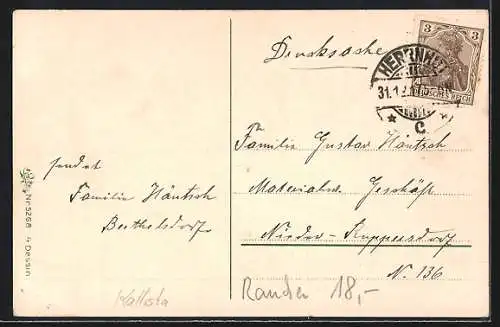 Drucksache
3
DEUTSCHES REICH
HERRNHUT
31.12.
* C.
Familie Gustav Häntsch
Materialw. Geschäft
Nieder-Ruppersdorf
N. 136
sendet
Familie Häntsch
Berthelsdorf.
Nr. 5268 4 Dessin.
Rander 18,-